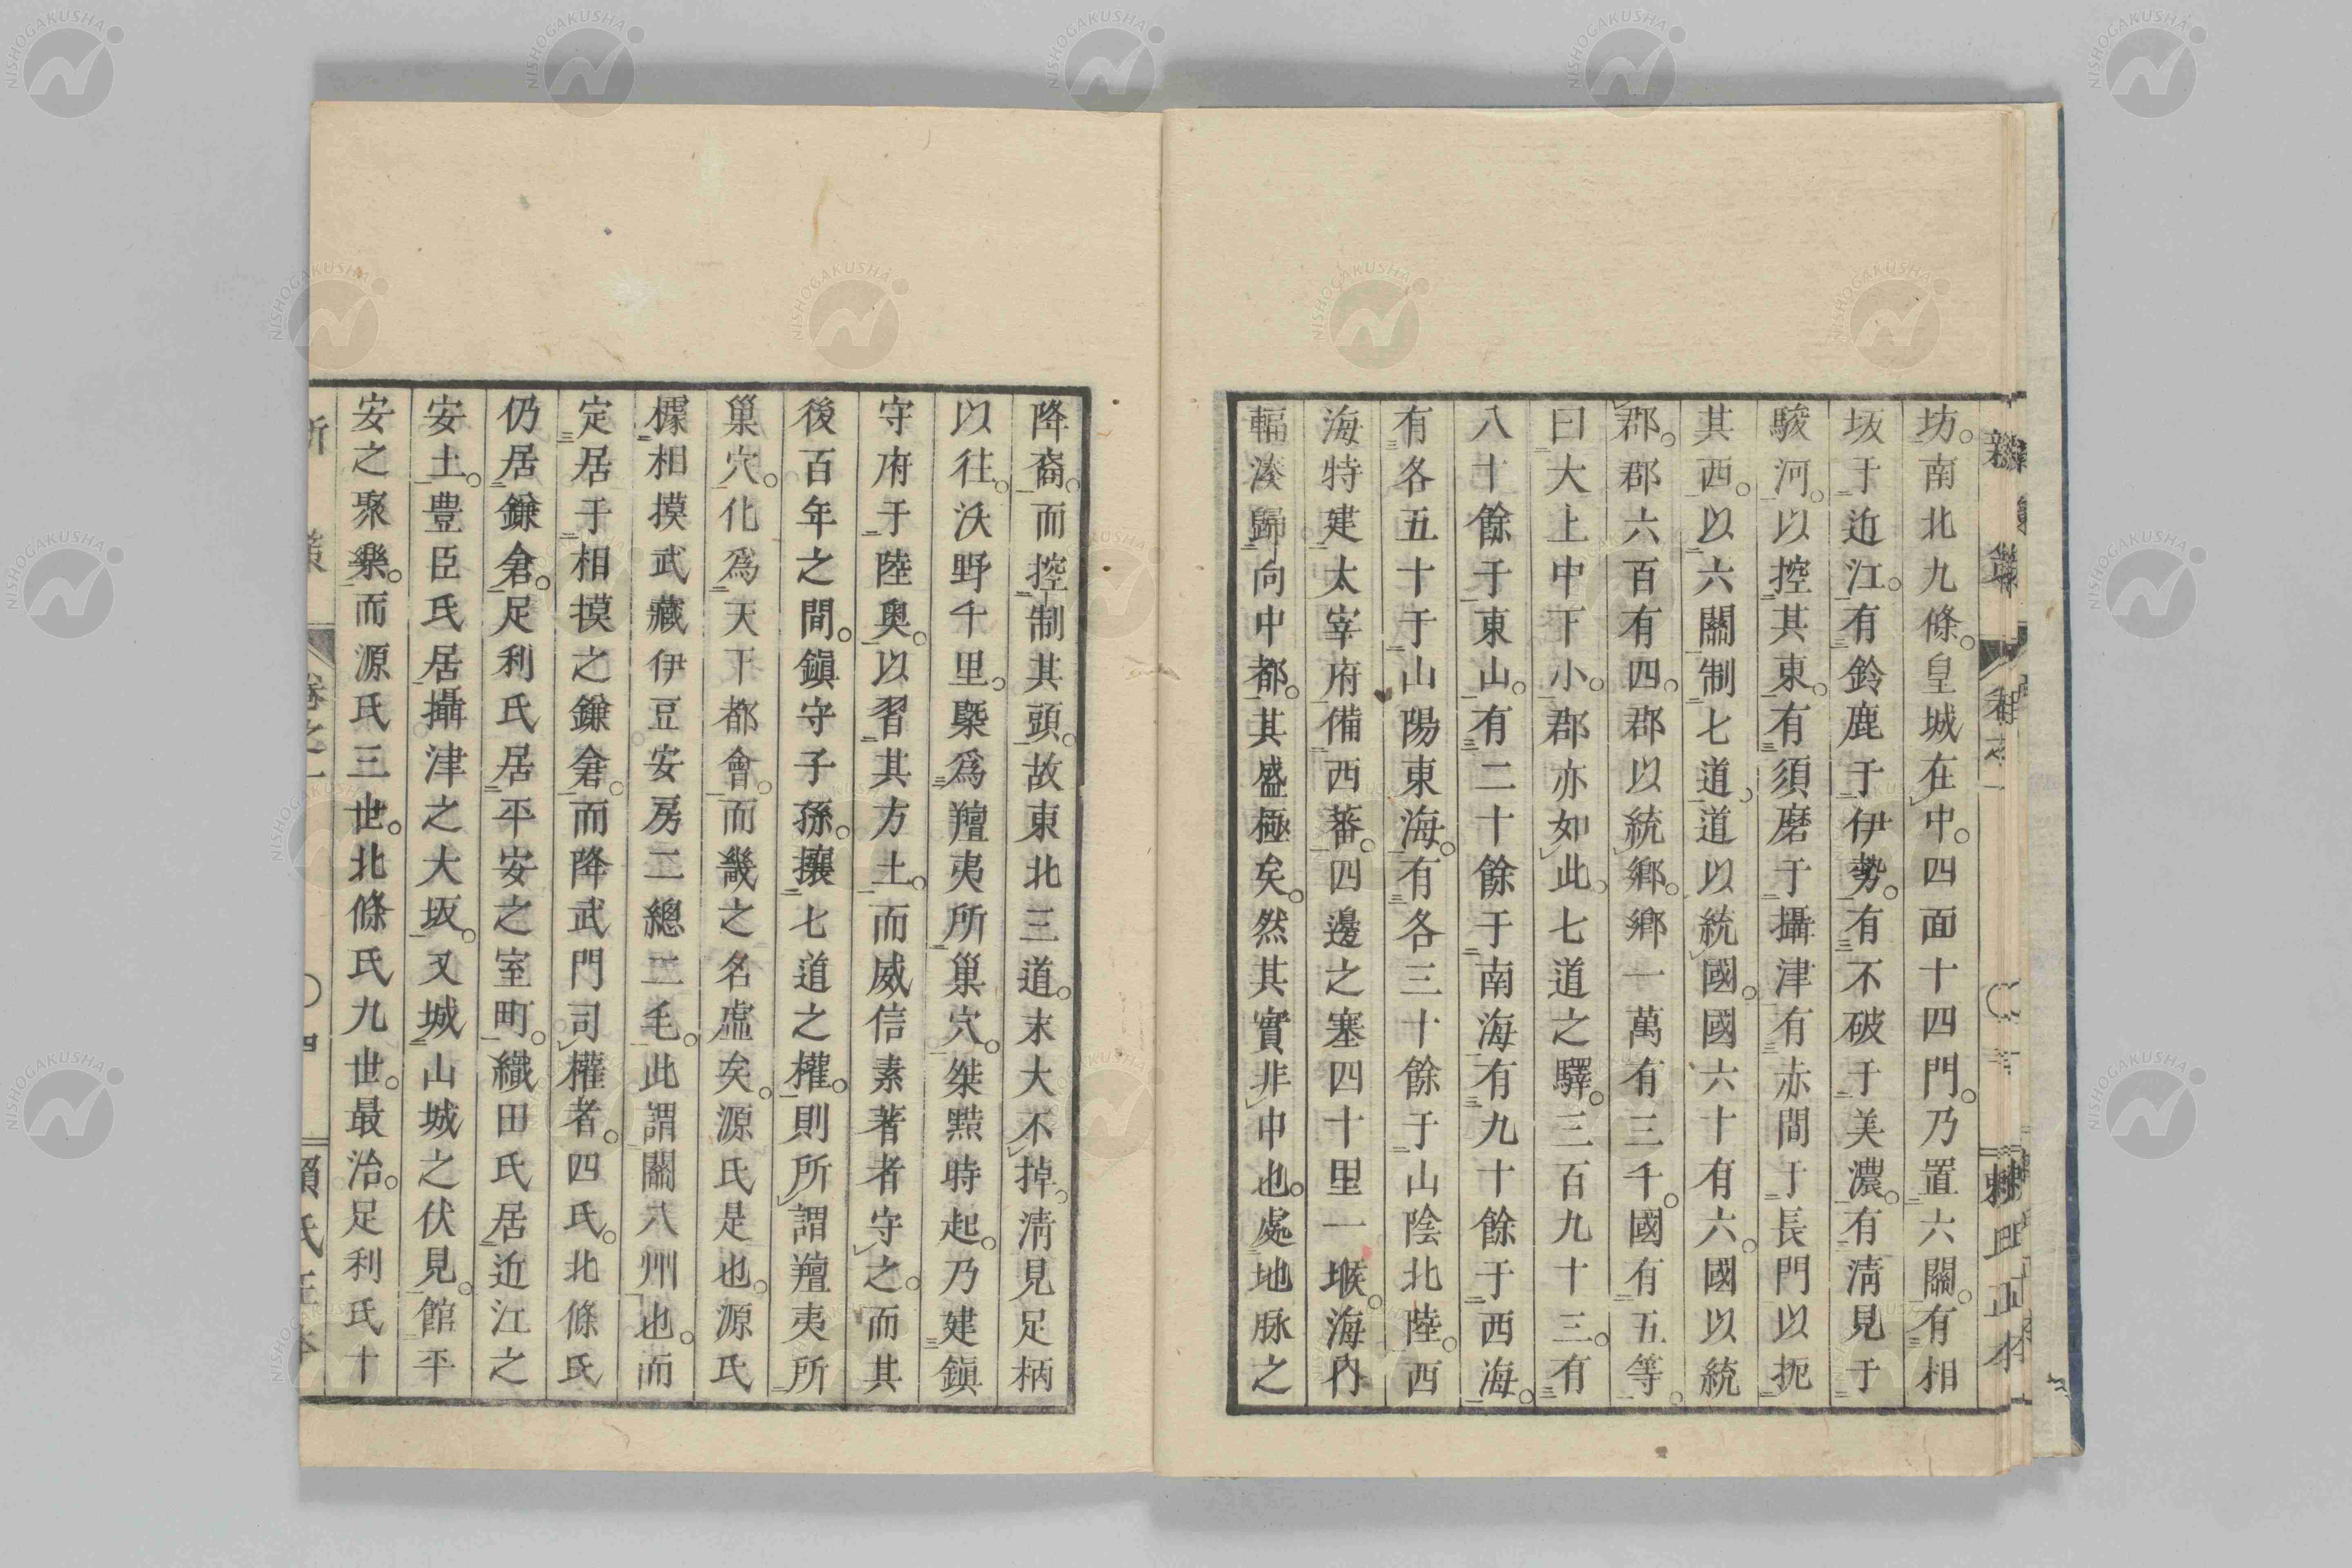 坊。南北九條。皇城在中。四面十四門。乃置六關。有相
坂于近江。有鈴鹿于伊勢。有不破于美濃。有淸見于
駿河。以控其東。有須磨于攝津有赤間于長門以扼
其西。以六關制七道。道以統國。國六十有六。國以統
郡。郡六百有四。郡以統鄉。鄉一萬有三千。國有五等。
曰大上中下小。郡亦如此。七道之驛。三百九十三。有
八十餘于東山。有二十餘于南海有九十餘于西海。
有各五十于山陽東海。有各三十餘于山陰北陸。西
海特建太宰府。備西蕃。四邊之塞四十里一堠。海內
輻湊歸向中都。其盛極矣。然其實非中也。處地脉之
降裔。而控制其頭。故東北三道。末大不掉。淸見足柄
以往。沃野千里。槩爲羶夷所巢穴。桀黠時起。乃建鎭
守府于陸奥。以習其方土。而威信素著者守之。而其
後百年之間。鎭守子孫。攘七道之權。則所謂羶夷所
巢穴。化爲天下都會。而畿之名虛矣。源氏是也。源氏
據相摸武藏伊豆安房二總二毛。此謂關八州也。而
定居于相摸之鎌倉。而降武門司權者。四氏。北條氏
仍居鎌倉。足利氏居平安之室町。織田氏居近江之
安土。豊臣氏居攝津之大坂。又城山城之伏見。館平
安之聚樂。而源氏三世。北條氏九世。最治。足利氏十
NISHOGAKUSHA